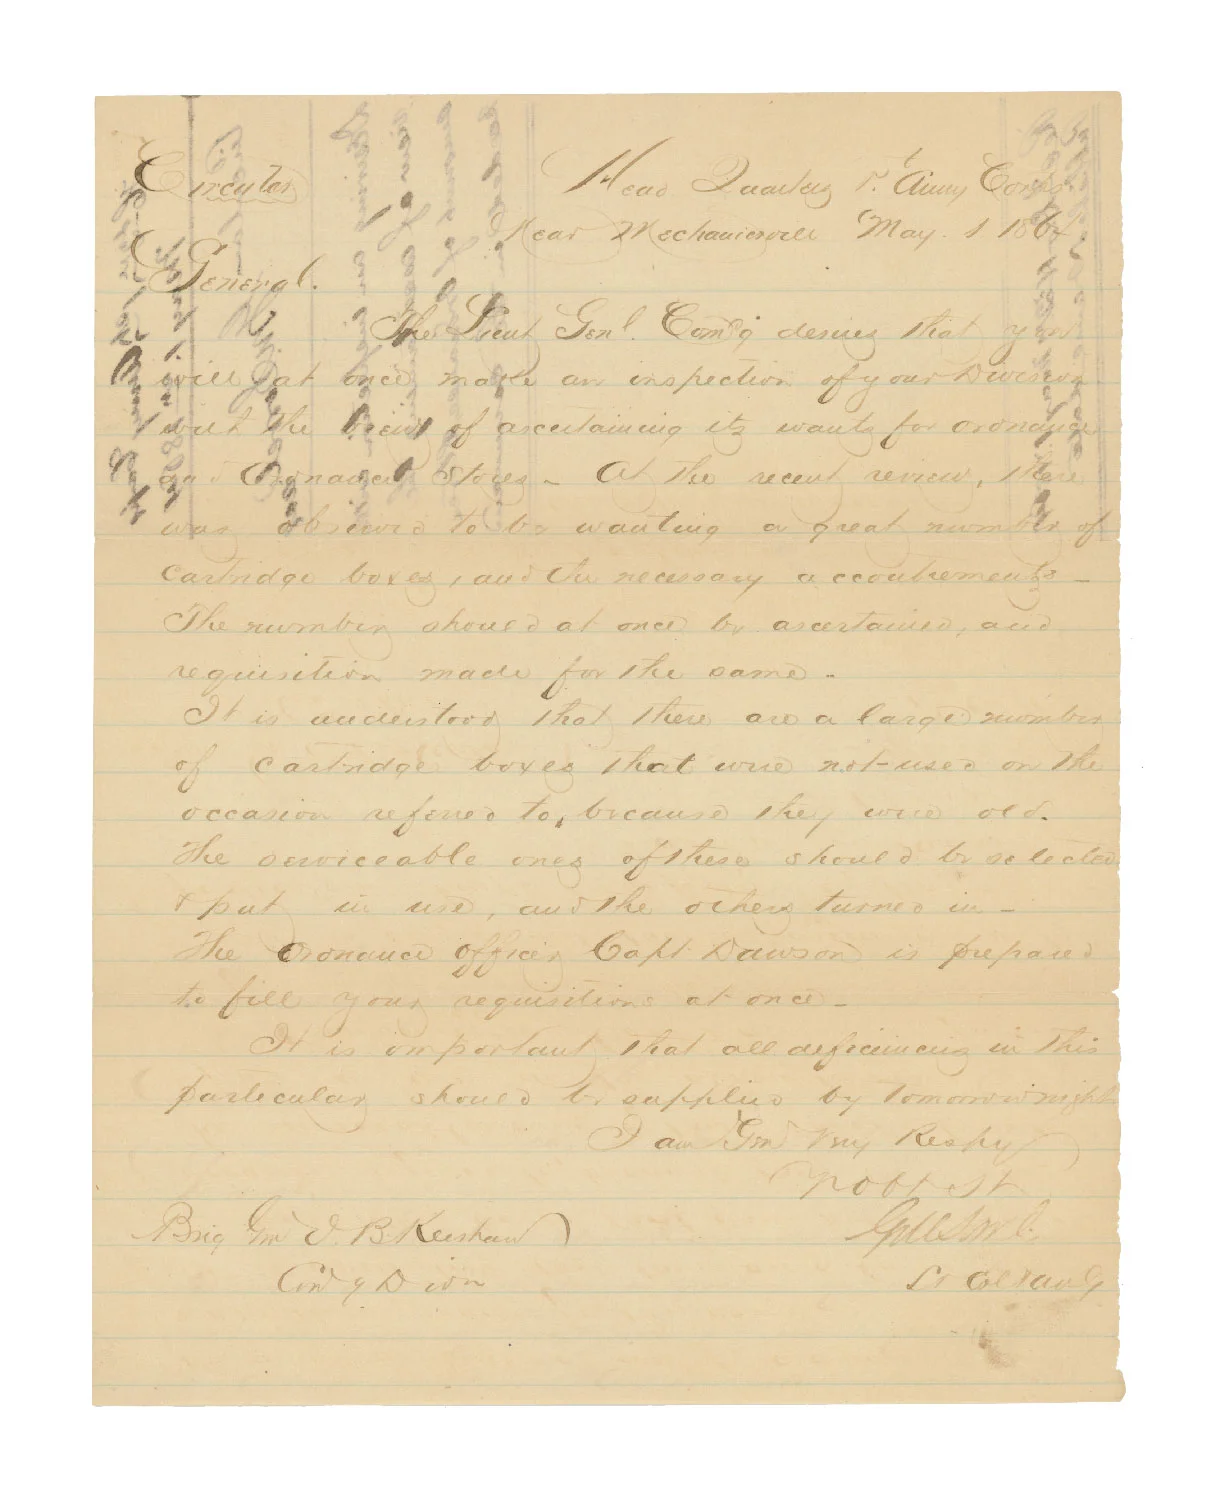 Circular Head Quarters 1st Army Corps
Near Mechanicsvill May. 1 1864
General.
The Lieut Genl. Comd'g desires that you
will at once make an inspection of your Division
with the view of ascertaining its wants for ordnance
and Ordnance Stores - At the recent review, there
was observed to be wanting a great number of
cartridge boxes, and the necessary accoutrements -
The number should at once be ascertained, and
requisition made for the same -
It is understood that there are a large number
of cartridge boxes that were not-used on the
occasion referred to, because they were old.
The serviceable ones of these should be selected
& put in use, and the others turned in -
The Ordnance officer Capt Dawson is prepared
to fill your requisitions at once -
It is important that all deficiencies in this
particular should be supplied by tomorrow night
I am Genl Very Respy
Yr Obt St
G M Sorrel
Brig Gen J. B. Kershaw
Comdg Divn
Lt Col & AAG